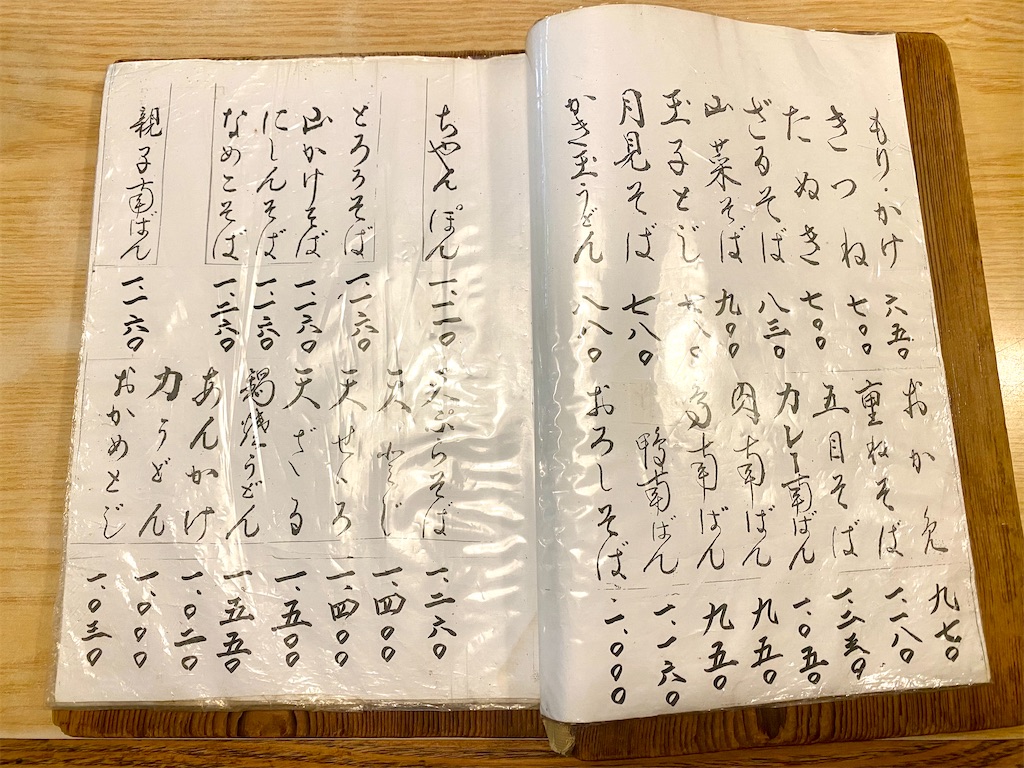 もり・かけ 六五〇
きつね 七〇〇
たぬき 七〇〇
ざるそば 八三〇
山菜そば 九〇〇
玉子とじ
月見そば 七八〇
かき玉うどん 八八〇
おか免 九七〇
重ねそば
五目そば
カレー南ばん 一、〇五〇
肉南ばん 九五〇
鳥南ばん 九五〇
鴨南ばん 一、一六〇
おろしそば 一、〇〇〇
ちゃんぽん 一、一一〇
とろろそば 一、一六〇
山かけそば 一、一六〇
にしんそば 一、一六〇
なめこそば 一、一六〇
親子南ばん 一、一六〇
天ぷらそば 一、二六〇
天とじ 一、四〇〇
天せいろ 一、四〇〇
天ざる 一、五〇〇
鍋焼うどん 一、五五〇
あんかけ 一、〇二〇
力うどん 一、〇〇〇
おかめとじ 一、〇三〇